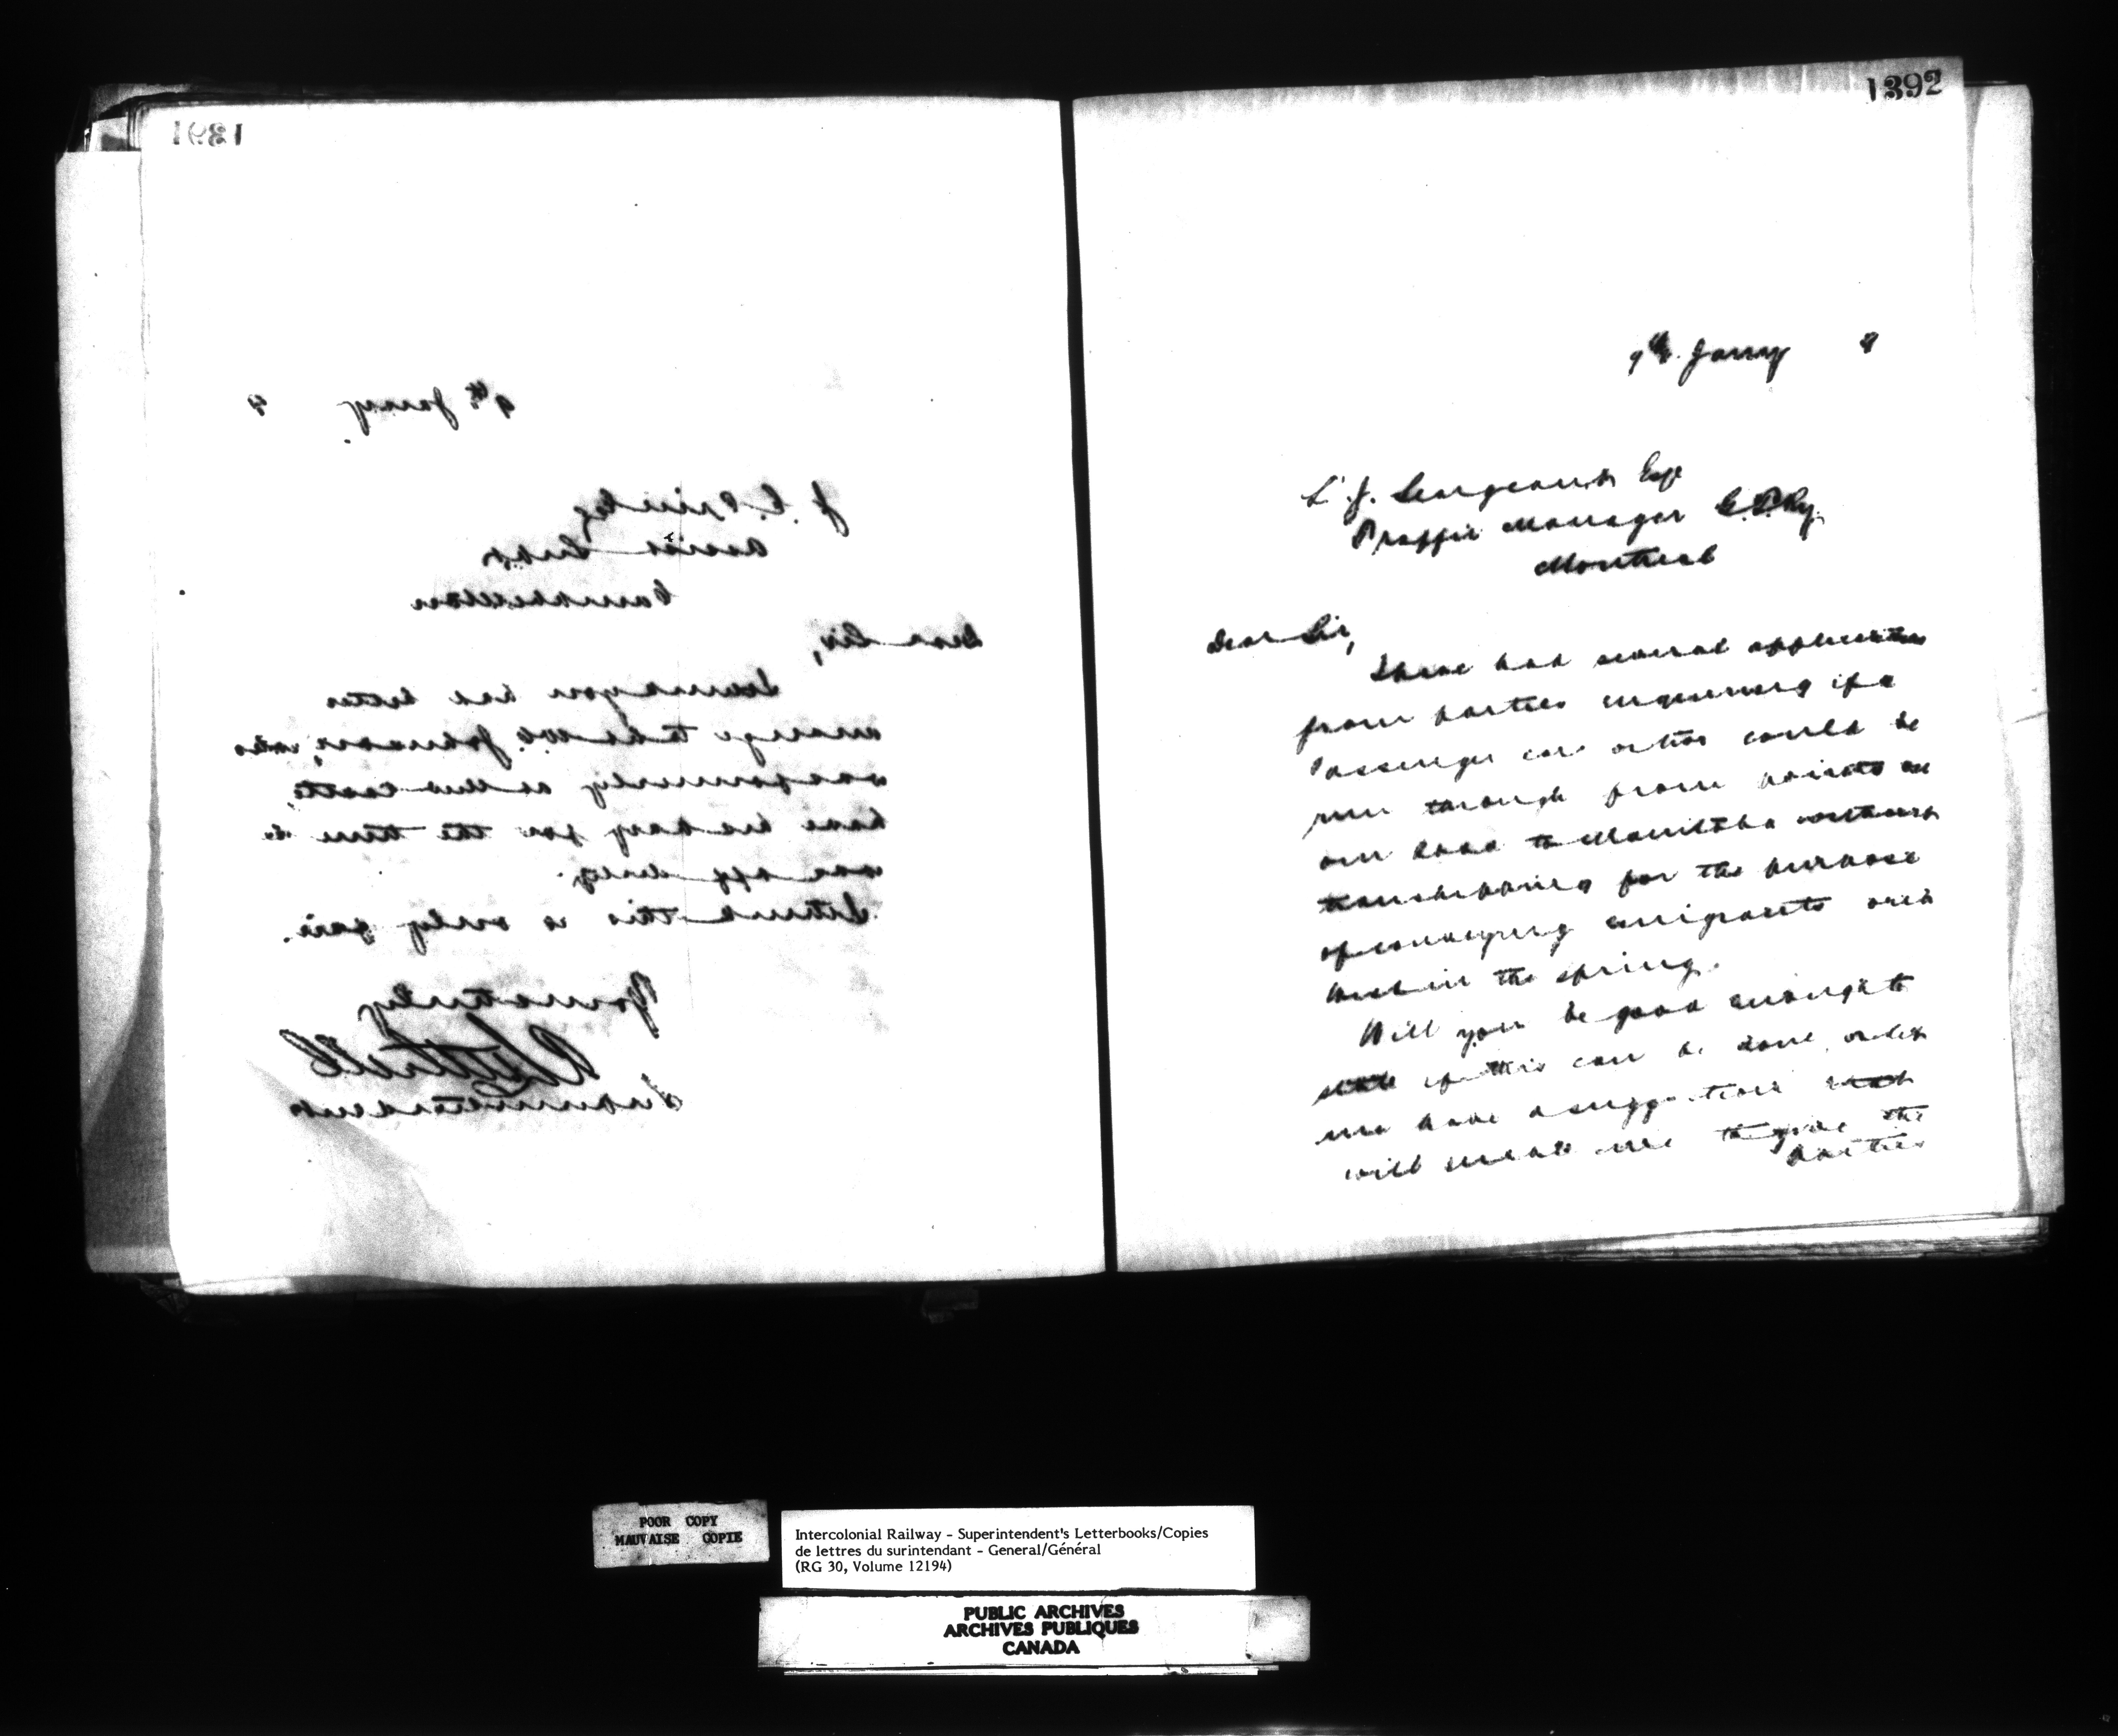 1391
9th Janry 9
J. C. Price Esq
Assist Supt
Campbellton
Dear Sir,
I wired you had better
arrange to take W. Johnson, who
was formerly as
have his pay for the time he
was off duty.
I think this is only fair.
Yours truly
Superintendent
1392
9th Janry 9
L. J. Seargeant Esq
Traffic Manager G.T.Ry.
Montreal
Dear Sir,
I have had several applications
from parties enquiring if a
Passenger car or two could be
run through from points on
our road to Manitoba without
transhipping for the purpose
of conveying emigrants
West in the spring.
Will you be good enough to
state if this can be done, or let
me have a suggestion that
will enable me to give the
parties
POOR COPY
MAUVAISE COPIE
Intercolonial Railway - Superintendent's Letterbooks/Copies
de lettres du surintendant - General/Général
(RG 30, Volume 12194)
PUBLIC ARCHIVES
ARCHIVES PUBLIQUES
CANADA